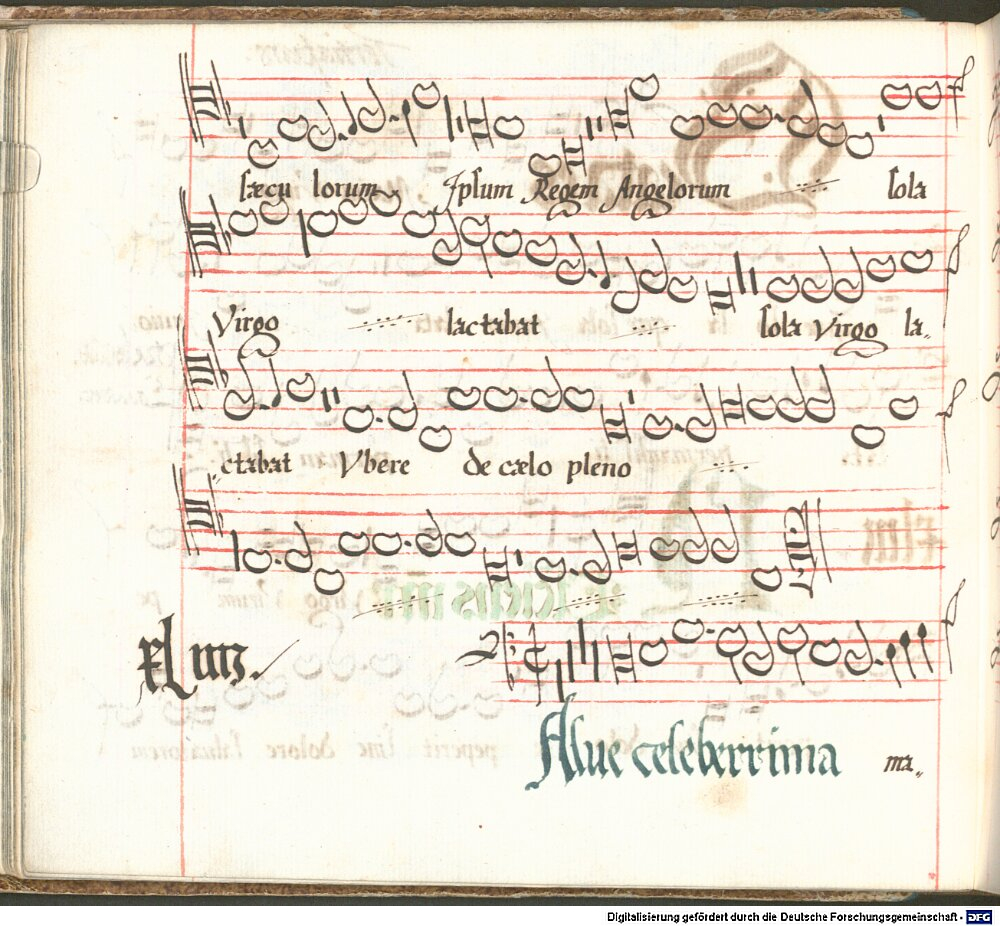 sæcu lorum Ipsum Regem Angelorum sola
Virgo lactabat sola Virgo la„
ctabat Vbere de cælo pleno
xliiij.
Aue celeberrima ma„
Digitalisierung gefördert durch die Deutsche Forschungsgemeinschaft - DFG